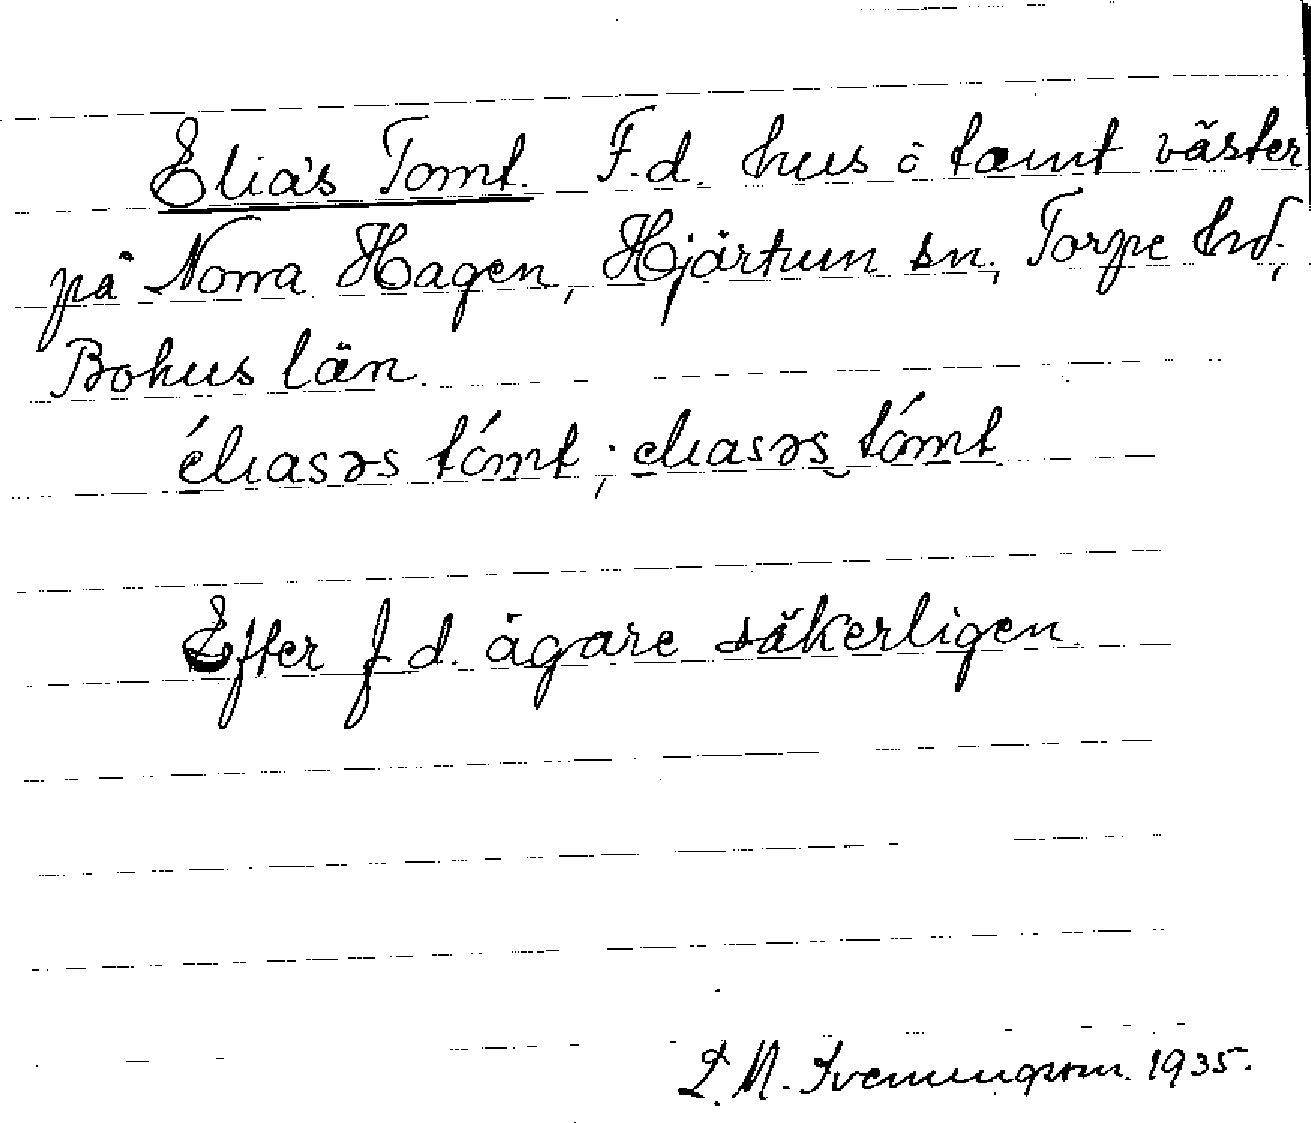 Elia's Tomt. F.d. hus o tomt väster
på Norra Hagen, Hjärtum sn., Torpe hd,
Bohus län.
élıasəs tómt; elıasəs tómt
Efter f d. ägare säkerligen
1935.